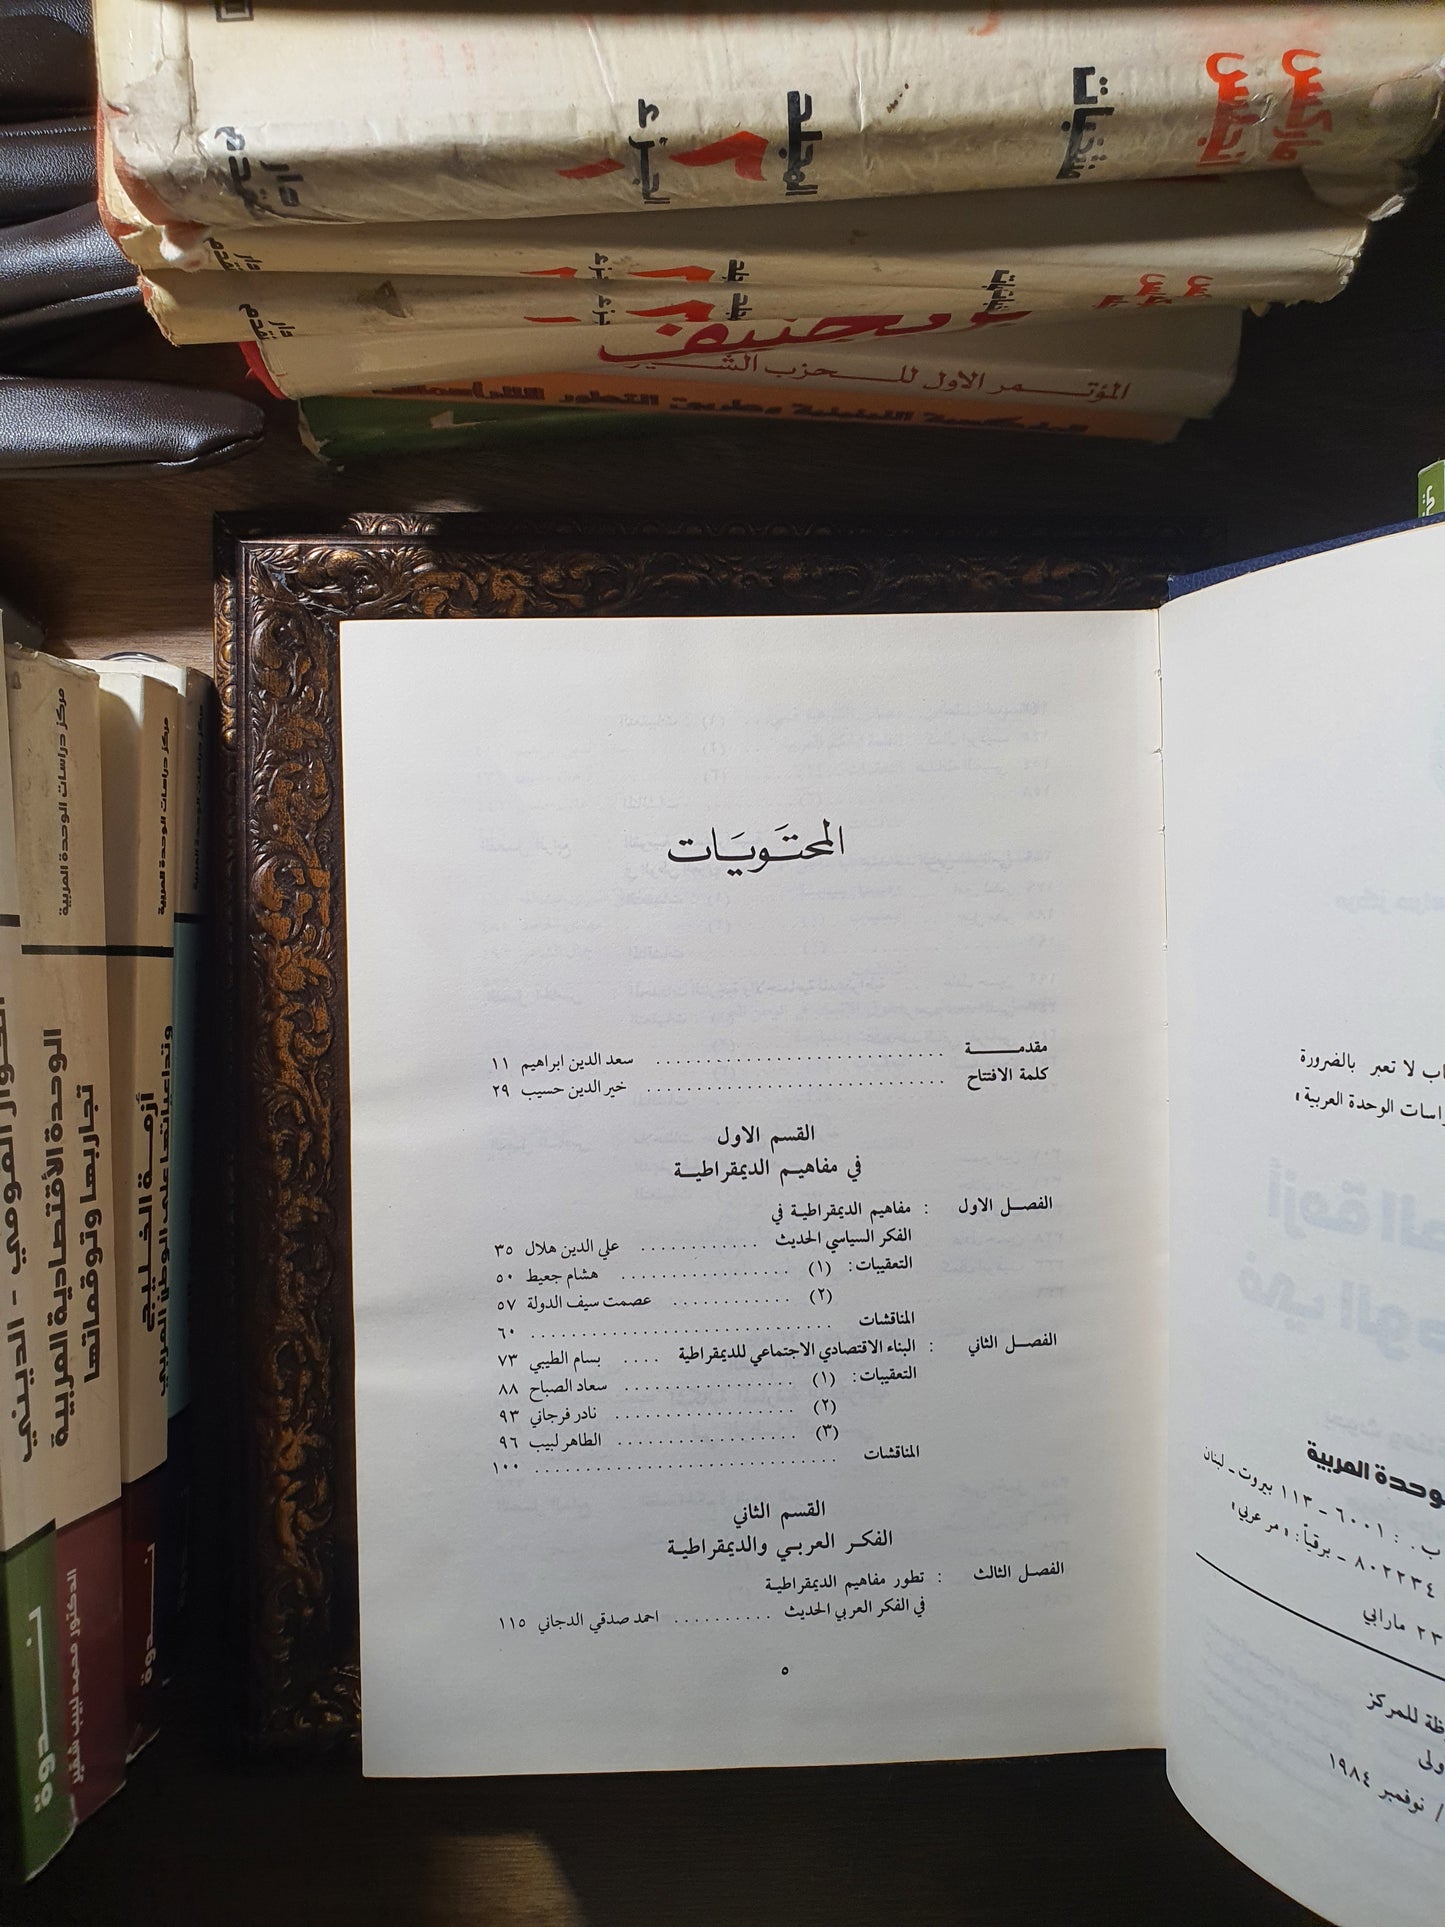 ماركس
انجلس
منتخبات
المجلد
٢
الجزء
١
دار
التقدم
المؤتمر الاول للحزب
مركز دراسات الوحدة العربية
الوحدة الاقتصادية العربية
تجاربها وتوقعاتها
الدكتور محمد لبيب شقير
مركز دراسات الوحدة العربية
أزمة الخليج
وتداعياتها على الوطن العربي
ندوة
مركز دراسات الوحدة العربية
الحوار القومي - الديني
ندوة
المحتويات
مقدمة ........ سعد الدين ابراهيم ١١
كلمة الافتتاح ........ خير الدين حسيب ٢٩
القسم الاول
في مفاهيم الديمقراطية
الفصل الاول : مفاهيم الديمقراطية في
الفكر السياسي الحديث ........ علي الدين هلال ٣٥
التعقيبات: (١) ........ هشام جعيط ٥٠
(٢) ........ عصمت سيف الدولة ٥٧
المناقشات ........ ٦٠
الفصل الثاني : البناء الاقتصادي الاجتماعي للديمقراطية .... بسام الطيبي ٧٣
التعقيبات: (١) ........ سعاد الصباح ٨٨
(٢) ........ نادر فرجاني ٩٣
(٣) ........ الطاهر لبيب ٩٦
المناقشات ........ ١٠٠
القسم الثاني
الفكر العربي والديمقراطية
الفصل الثالث : تطور مفاهيم الديمقراطية
في الفكر العربي الحديث ........ احمد صدقي الدجاني ١١٥
٥
لا تعبر بالضرورة
الوحدة العربية»
الوحدة العربية
ب. : ٦٠٠١ - ١١٣ بيروت - لبنان
٨٠٢٢٣٤ - برقياً: «مرعربي»
٢٣ مارابي
للمركز
نوفمبر ١٩٨٤